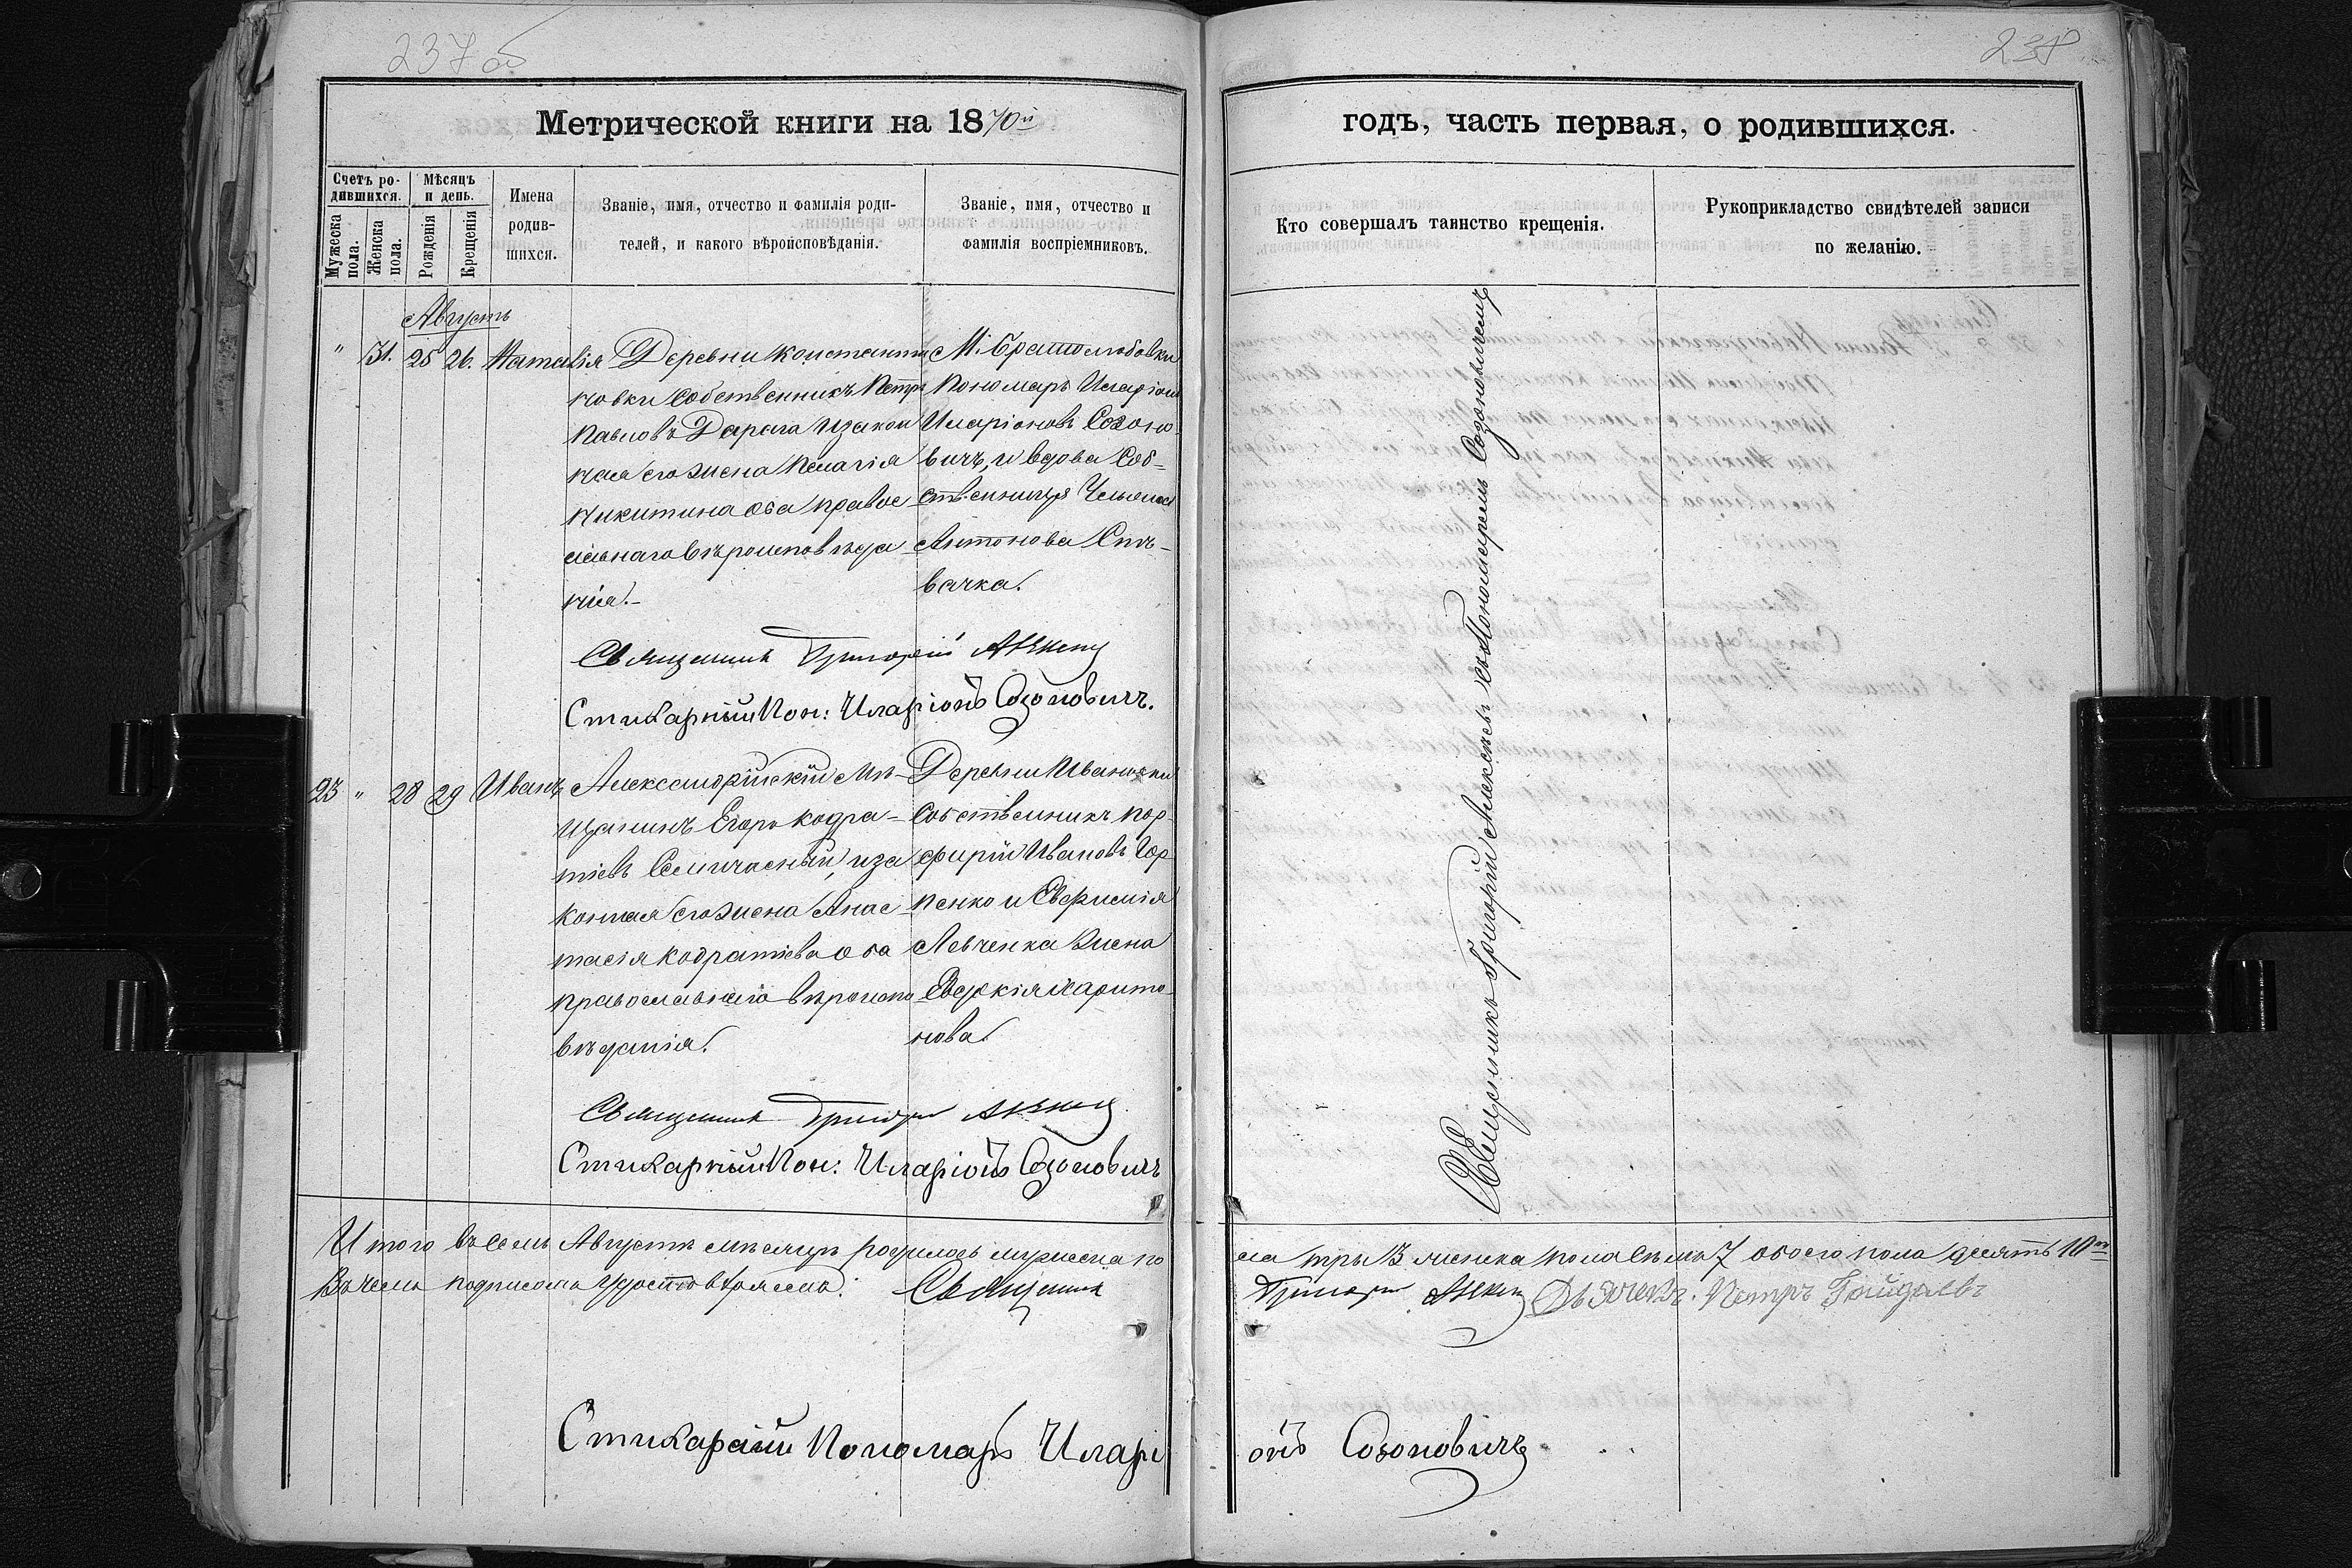 237об
238
Метрической книги на 1870й
годъ, часть первая, о родившихся.
Счетъ родившихся.
Мужеска пола.
Женска пола.
Мѣсяцъ и день.
Рожденія
Крещенія
Имена родившихся.
Званіе, имя, отчество и фамилія родителей, и какого вѣроисповѣданія.
Званіе, имя, отчество и фамилія воспріемниковъ.
Кто совершалъ таинство крещенія.
Рукоприкладство свидѣтелей записи по желанію.
Августъ
" 31. 25 26. Наталія
Деревни Константи
новки собственникъ Петръ
Павловъ Дарага и закон
ная его жена Пелагія
Никитина оба правос
лавнаго вѣроисповѣда
нія.-
М. Братолюбовки
Пономарь Иларіонъ
Иларіоновъ Созоно
вичъ, и вдова Соб-
ственница
Антонова Спѣ-
вачка.
Священникъ Григорій
Стихарный Пон: Иларіонъ Созоновичъ.
23 " 28 29 Иванъ
Александрійскій мѣ-
щанинъ Егоръ Кодра-
тіевъ Семичасный, и за
конная его жена Анас
тасія Кодратіева оба
православнаго вѣроиспо
вѣданія.
Деревни Ивановки
собственникъ Пор
фирій Ивановъ Гор
пенко и Евфимія
Левченка жена
Евдокія Харито
нова.
Священникъ Григорій
Стихарный Пон: Иларіонъ Созоновичъ
Священникъ Григорій Алексѣевъ съ Пономаремъ Созоновичемъ
Итого въ семъ Августѣ мѣсяцѣ родилось мужеска по
ла три 3 женска пола семь 7 обоего пола десять 10ть
Въ чемъ подписомъ удостовѣряемъ: Священникъ
Григорій Дьячекъ. Петръ Гайдаевъ
Стихарный Пономарь Иларі
онъ Созоновичъ